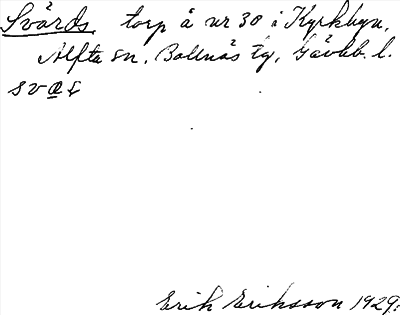 Svärds, torp å nr 30 i Kyrkbyn,
Alfta sn, Bollnäs tg, Gävleb. l.
Erik Eriksson 1929.